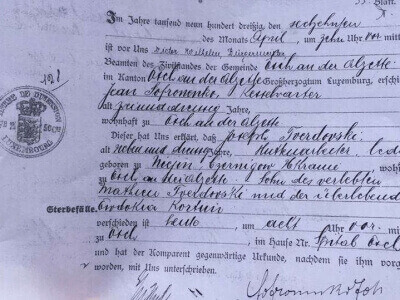 33. Blatt
Im Jahre tausend neun hundert dreißig, den sechzehnten
des Monats April, um zehn Uhr vor mitt
ist vor Uns
Beamten des Zivilstandes der Gemeinde Esch an der Alzette
im Kanton Esch an der Alzette Großherzogtum Luxemburg, erschi
Jean Sofronenko, Kesselwärter
alt Jahre,
wohnhaft zu Esch an der Alzette
Dieser hat Uns erklärt, daß Joseph Tverdovski
alt neun und dreißig Jahre, Hüttenarbeiter, led
geboren zu Czernigow Ukraine wohn
zu Esch an der Alzette, Sohn des verlebten
Mathieu Tverdovski und der überlebend
Sterbefälle. Evdokia
verschieden ist heute, um acht Uhr vor mi
zu Esch, im Hause Nr. Spital Esch
und hat der Komparent gegenwärtige Urkunde, nachdem sie ihm vorge
worden, mit Uns unterschrieben.
121
LUXEMBOURG